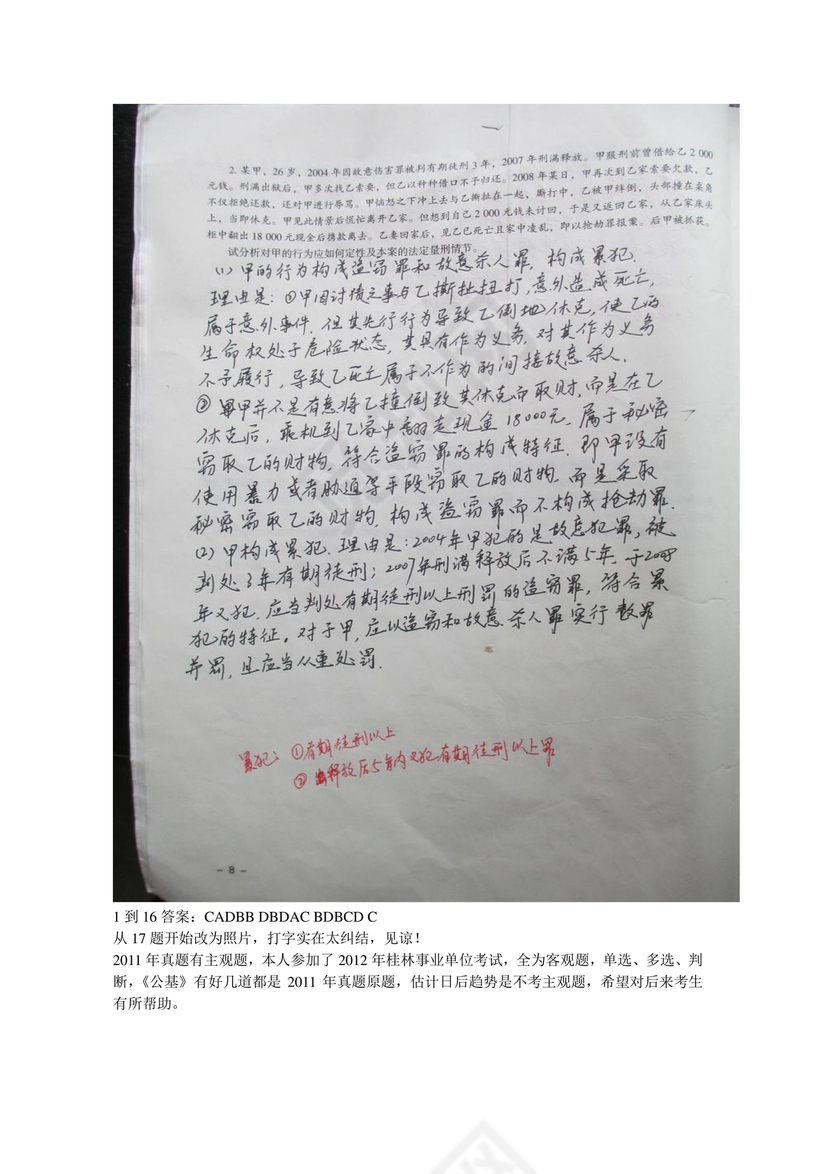 2. 某甲，26 岁，2004 年因故意伤害罪被判有期徒刑 3 年，2007 年刑满释放。甲服刑前曾借给乙 2 000
元钱。刑满出狱后，甲多次找乙索要，但乙以种种借口不予归还。2008 年某日，甲再次到乙家索要欠款，乙
不仅拒绝还款，还对甲进行辱骂。甲恼怒之下冲上去与乙撕扯在一起，厮打中，乙被甲绊倒，头部撞在桌角
上，当即休克。甲见此情景后慌忙离开乙家。但想到自己 2 000 元钱未讨回，于是又返回乙家，从乙家床头
柜中翻出 18 000 元现金后携款离去。乙妻回家后，见乙已死亡且家中凌乱，即以抢劫罪报案。后甲被抓获。
试分析对甲的行为应如何定性及本案的法定量刑情节。
(1) 甲的行为构成盗窃罪和故意杀人罪，构成累犯.
理由是：①甲因讨债之事与乙撕扯扭打，意外造成死亡，
属于意外事件. 但其先行行为导致乙倒地休克，使乙的
生命权处于危险状态，其具有作为义务. 对其作为义务
不予履行，导致乙死亡属于不作为的间接故意杀人.
② 甲并不是有意将乙撞倒致其休克而取财，而是在乙
休克后，乘机到乙家中翻走现金 18000元. 属于秘密
窃取乙的财物，符合盗窃罪的构成特征. 即甲没有
使用暴力或者胁迫等手段窃取乙的财物. 而是采取
秘密窃取乙的财物. 构成盗窃罪而不构成抢劫罪.
(2) 甲构成累犯. 理由是：2004年甲犯的是故意犯罪，被
判处3年有期徒刑；2007年刑满释放后不满5年. 于2008
年又犯. 应当判处有期徒刑以上刑罚的盗窃罪，符合累
犯的特征。对于甲，应以盗窃和故意杀人罪实行数罪
并罚，且应当从重处罚.
累犯：①有期徒刑以上
② 释放后5年内又犯有期徒刑以上罪
- 8 -
1 到 16 答案：CADBB DBDAC BDBCD C
从 17 题开始改为照片，打字实在太纠结，见谅！
2011 年真题有主观题，本人参加了 2012 年桂林事业单位考试，全为客观题，单选、多选、判
断，《公基》有好几道都是 2011 年真题原题，估计日后趋势是不考主观题，希望对后来考生
有所帮助。